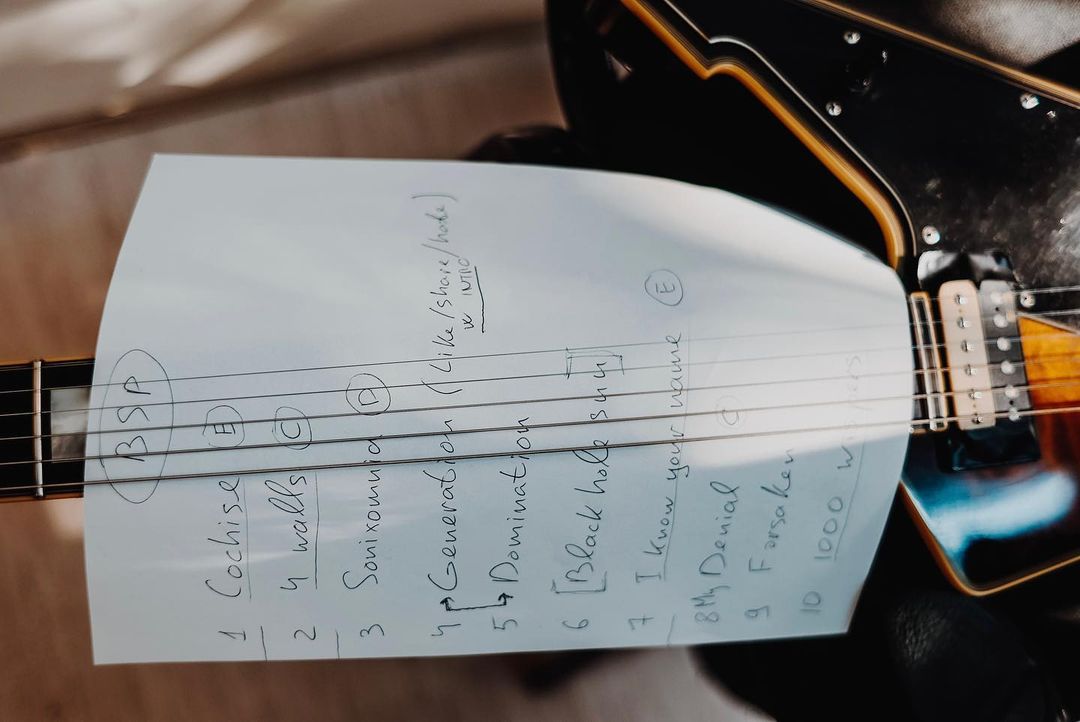 BSP
1 Cochise E
2 4 walls C
3 Sonixomnia D
4 Generation (Like/share/hate)
INTRO
5 Domination
6 [Black hole sun]
7 I know your name E
8 My Denial C
9 Forsaken
10 1000 whispers